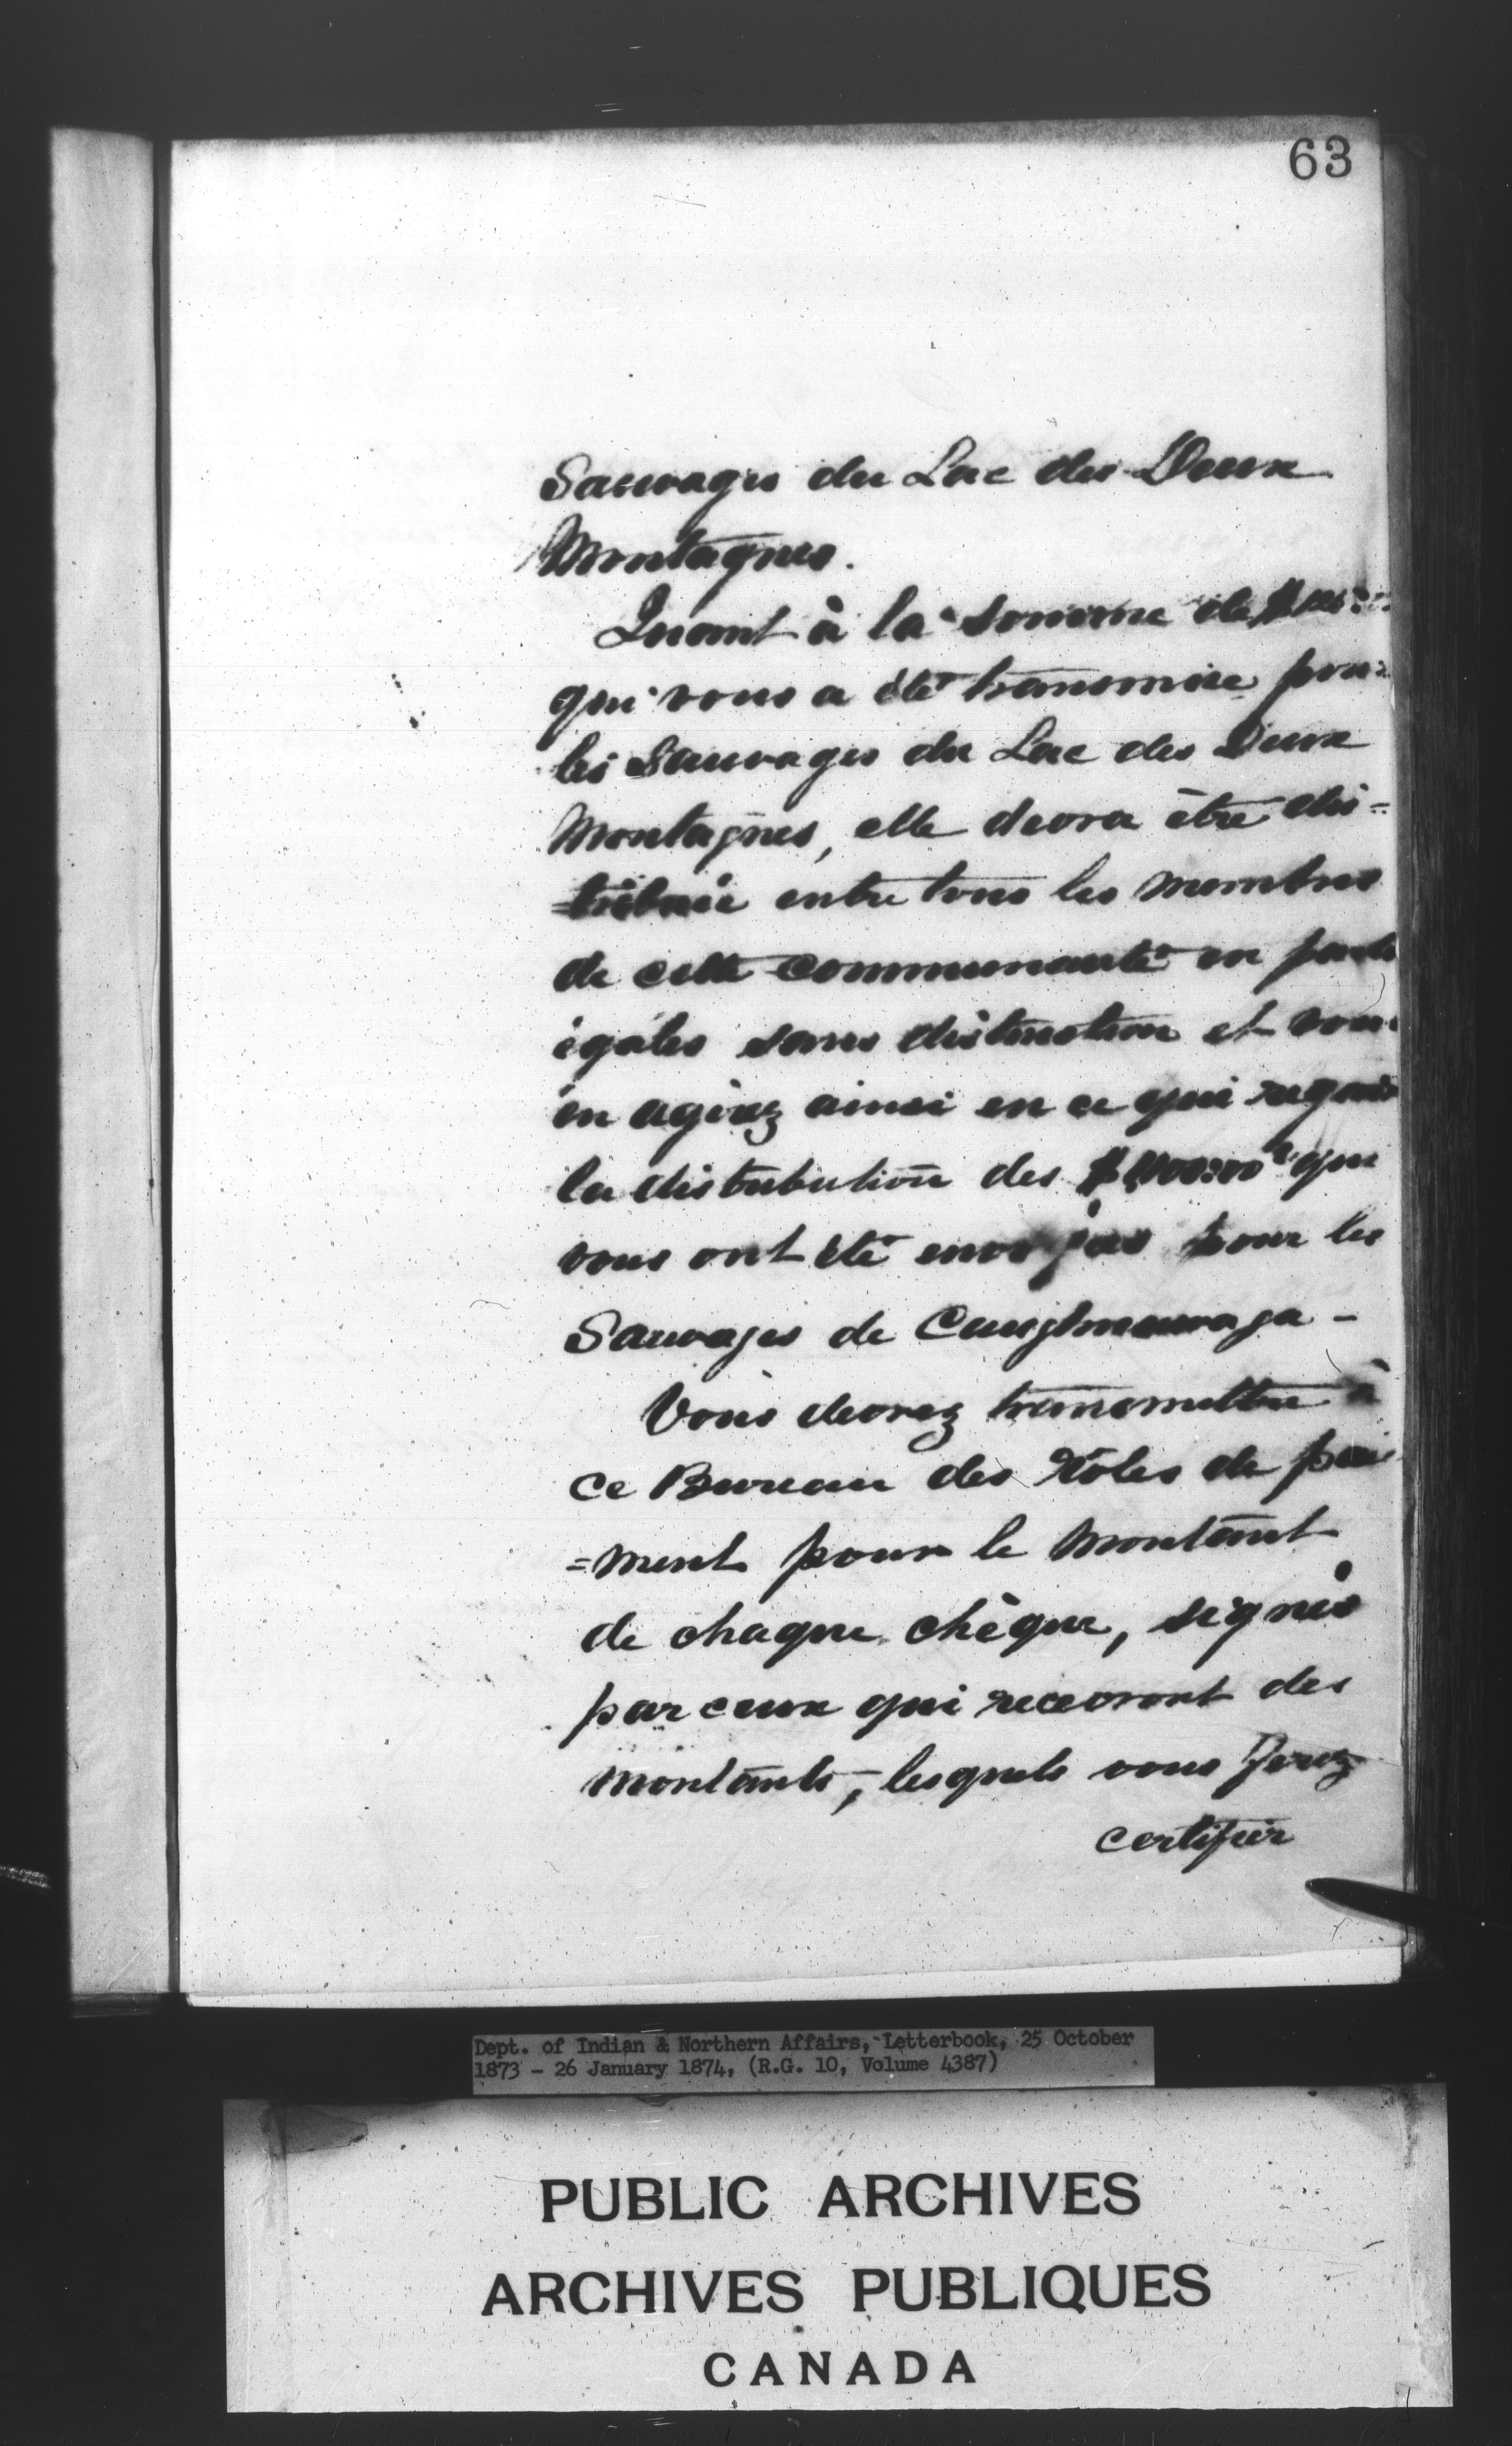 63
Sauvages du Lac des Deux
Montagnes.
Quant à la somme de
qui vous a été transmise pour
les Sauvages du Lac des Deux
Montagnes, elle devra être dis=
=tribuée entre tous les membres
de cette communauté en parts
égales sans distinction et vous
en agirez ainsi en ce qui regarde
la distribution des que
vous ont été pour les
Sauvages de Caughnawaga -
Vous devrez transmettre à
ce Bureau des Rôles de paie
=ment pour le montant
de chaque chèque, signés
par ceux qui recevront des
montants, lesquels vous ferez
certifier
Dept. of Indian & Northern Affairs, Letterbook, 25 October
1873 - 26 January 1874, (R.G. 10, Volume 4387)
PUBLIC ARCHIVES
ARCHIVES PUBLIQUES
CANADA